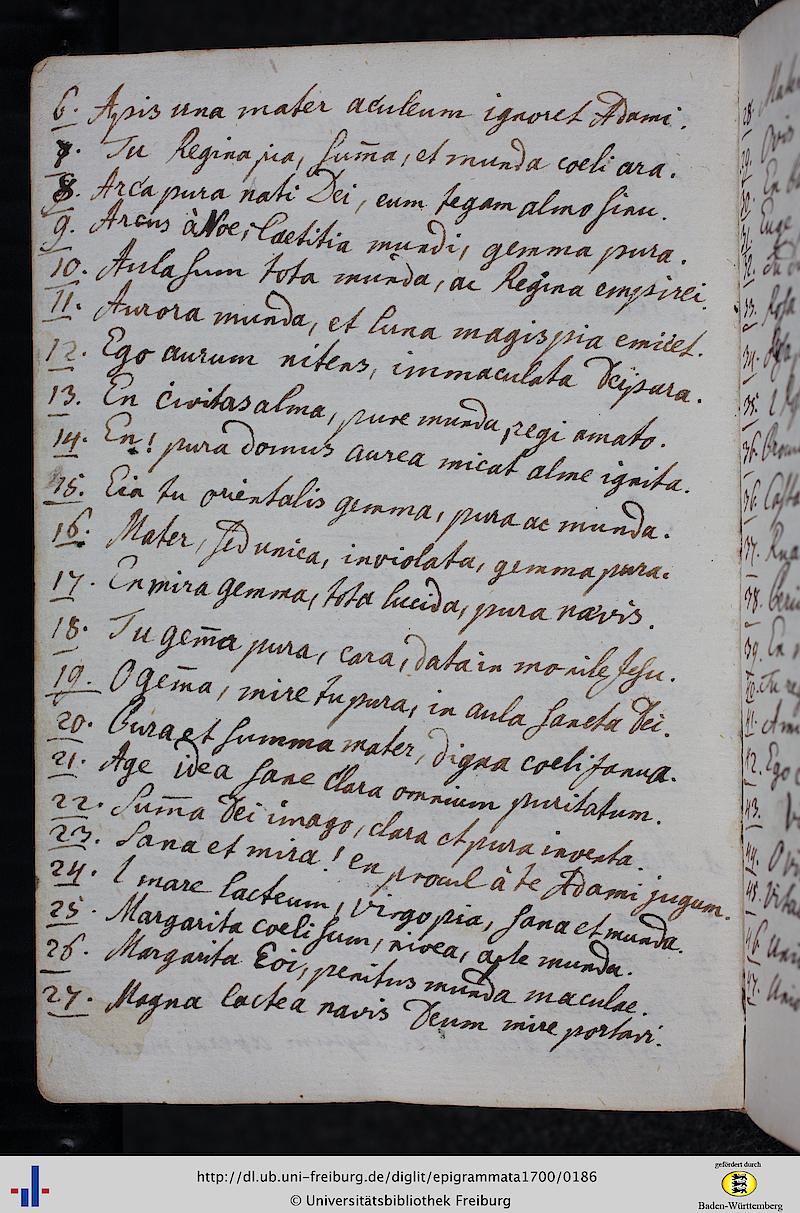 6. Apis una mater aculeum ignoret Adami.
7. Tu Regina pia, sum̃a, et munda coeli ara.
8. Arca pura nati Dei, eum tegam almo sinu.
9. Arcus à Noe, laetitia mundi, gemma pura.
10. Aula sum tota munda, ac Regina empirei.
11. Aurora munda, et luna magis pia emicet.
12. Ego aurum nitens, immaculata Deipara.
13. En civitas alma, pure munda, regi amato.
14. En! pura domus aurea micat alme ignita.
15. Eia tu orientalis gemma, pura ac munda.
16. Mater, sed unica, inviolata, gemma pura.
17. En mira gemma, tota lucida, pura navis.
18. Tu gem̃a pura, cara, data in monile Jesu.
19. O gem̃a, mire tu pura, in aula sancta Dei.
20. Pura et summa mater, digna coeli janua.
21. Age idea sane clara omnium puritatum.
22. Sum̃a Dei imago, clara et pura inventa.
23. Sana et mira! en procul à te Adami jugum.
24. I mare lacteum, virgo pia, sana et munda.
25. Margarita coeli sum, nivea, acte munda.
26. Margarita Eoi, penitus munda maculae.
27. Magna lactea navis Deum mire portavi.
28.
Ovis
32.
33. Rosa
34.
35.
36.
36. Casta
37.
38.
39. En
41.
42. Ego
43.
44.
45.
46.
47.
http://dl.ub.uni-freiburg.de/diglit/epigrammata1700/0186
© Universitätsbibliothek Freiburg
gefördert durch
Baden-Württemberg